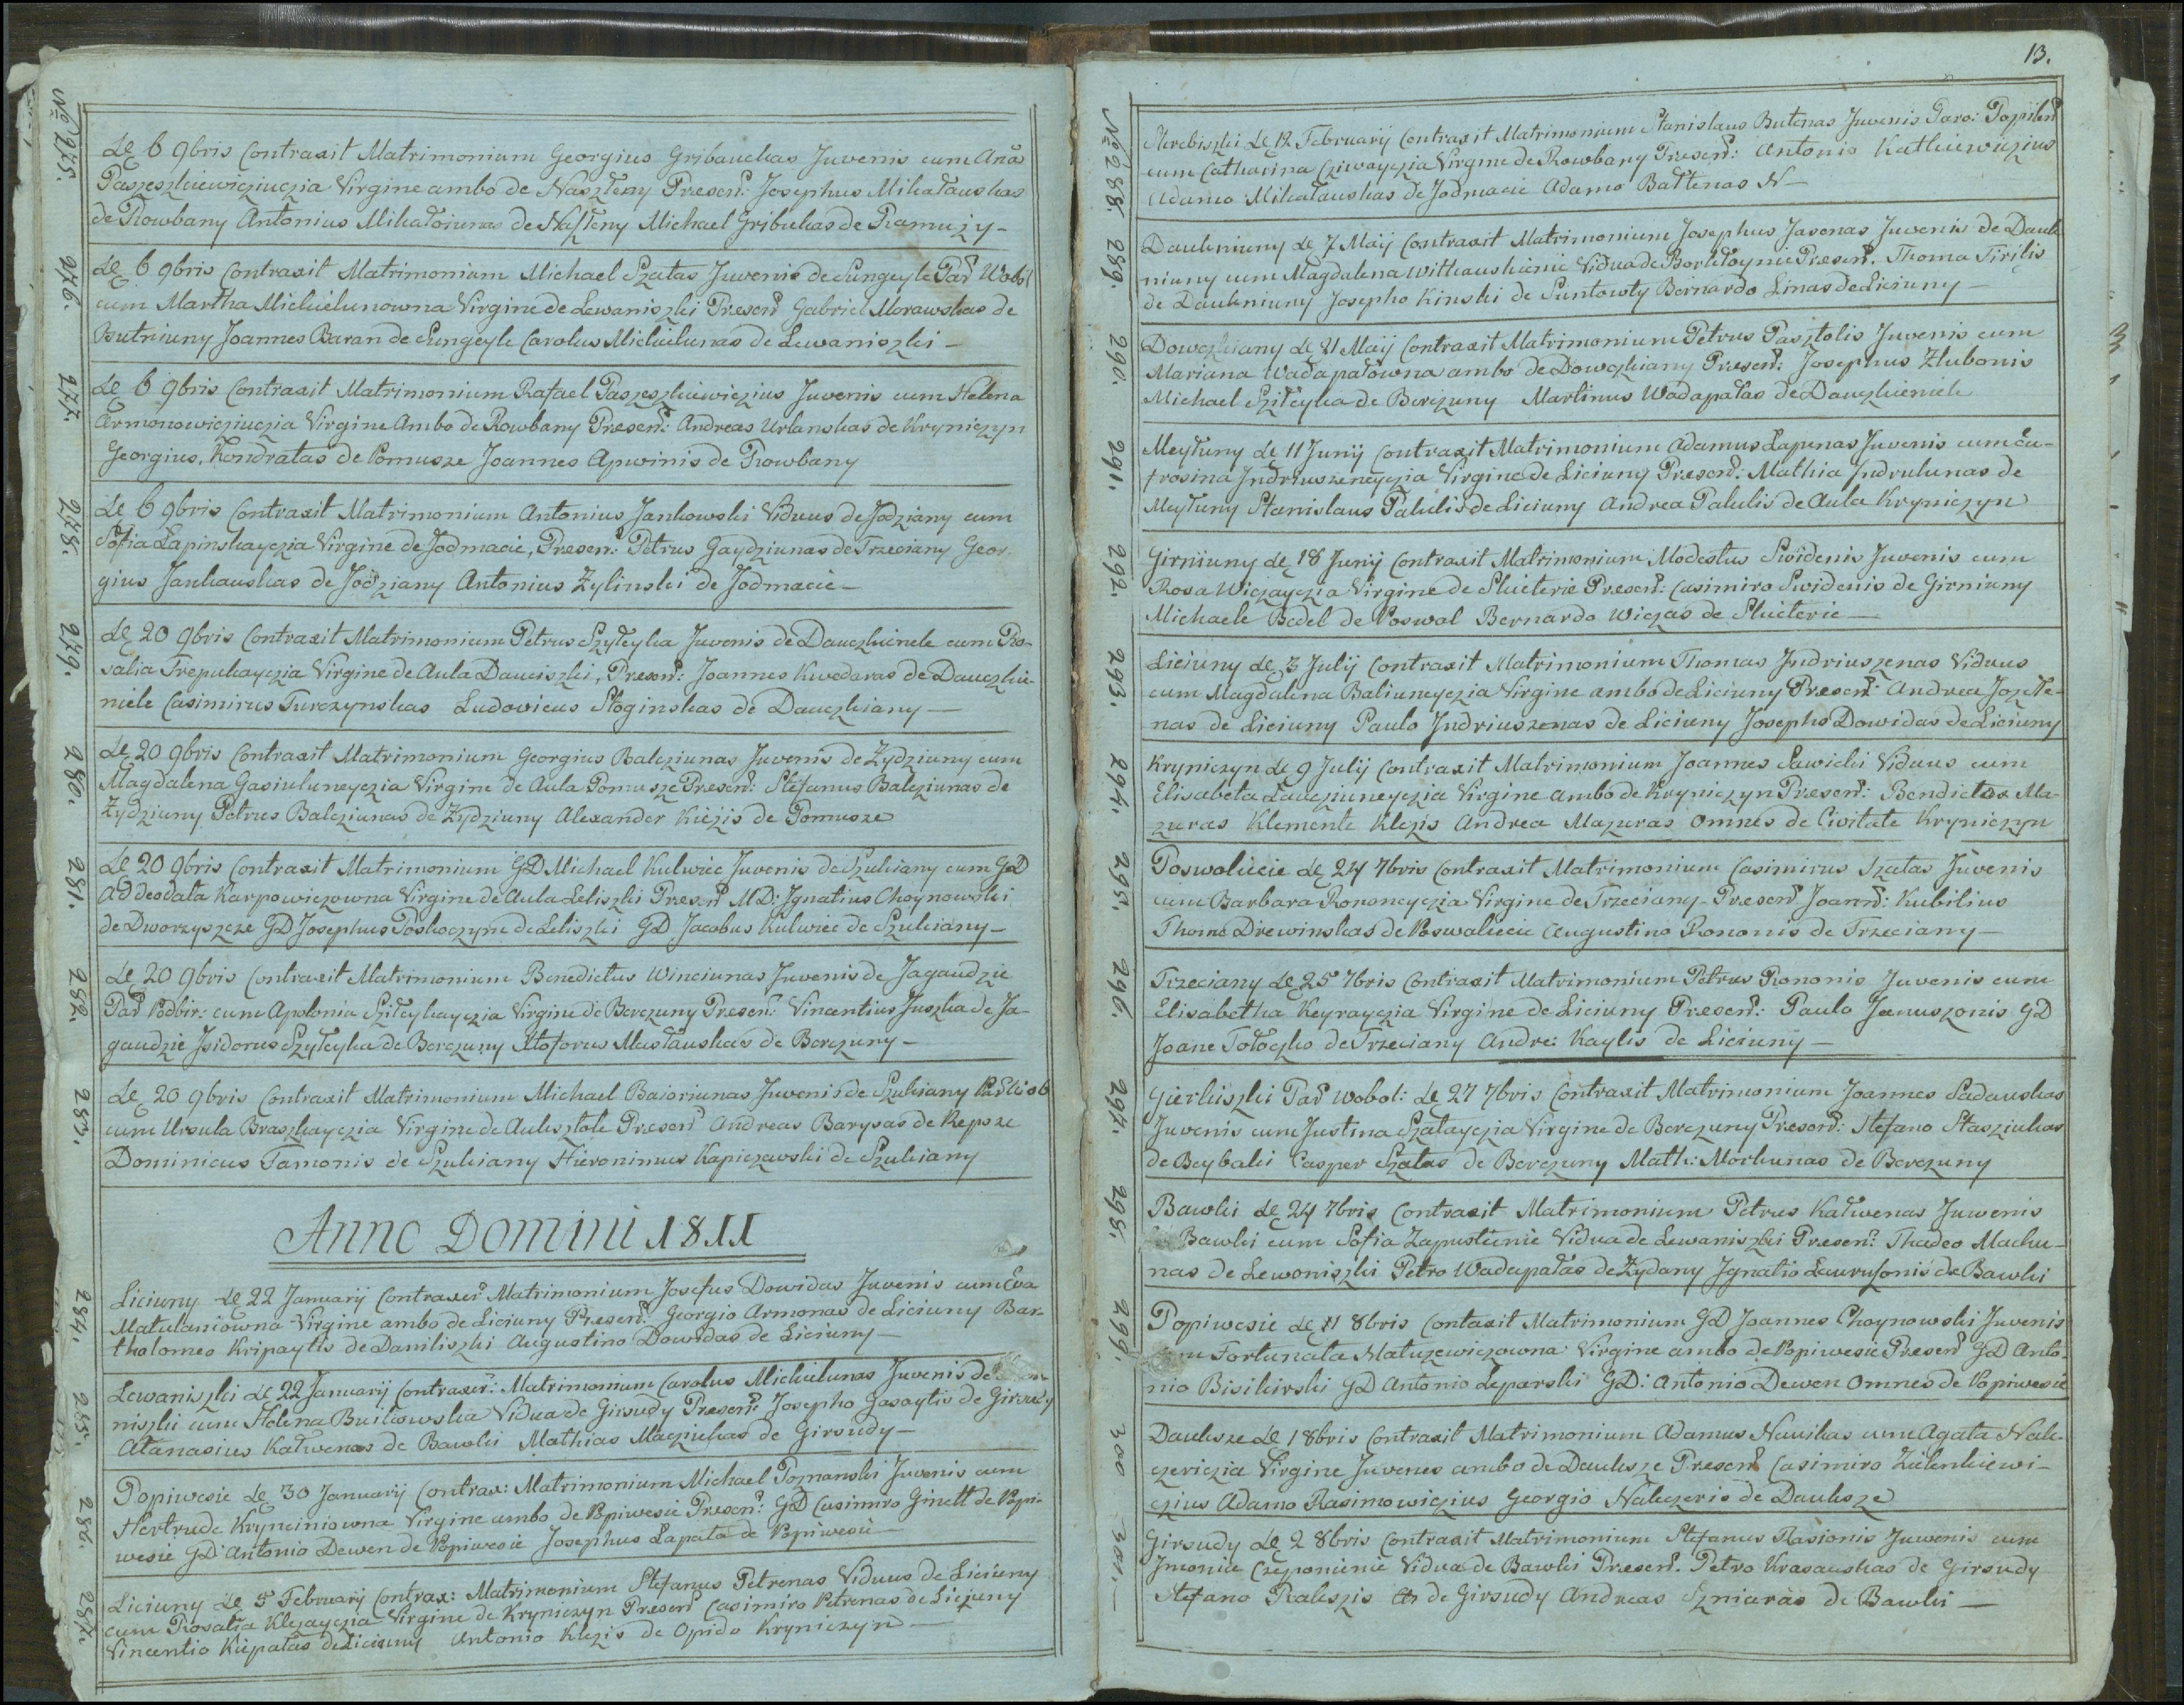 No 275.
De 6 9bris Contraxit Matrimonium Georgius Gribauckas Juvenis cum Aña
Paszeszkiewicziuczia Virgine ambo de Naszleny Presen: Josephus Mikałauskas
de Rowbany Antonius Mikałoiunas de Naszleny Michael Gribuckas de Ramuży -
276.
De 6 9bris Contraxit Matrimonium Michael Szatas Juvenis de Sungeyle Par Wobol
cum Martha Mickielunowna Virgine de Lewaniszki Presen Gabriel Morawskas de
Butniuny Joannes Baran de Sungeyle Carolus Mickielunas de Lewaniszki -
277.
De 6 9bris Contraxit Matrimonium Rafael Paszeszkiewiczius Juvenis cum Helena
Armonowicziuczia Virgine Ambo de Rowbany Presen: Andreas Urlanskas de Kryniczyn
Georgius Kondratas de Pomusze Joannes Apwinis de Rowbany
278.
De 6 9bris Contraxit Matrimonium Antonius Jankowski Viduus de Jodziany cum
Sofia Łapinskayczia Virgine de Jodmacie, Presen: Petrus Gaydziunas de Trzeciany Geor-
gius Jankauskas de Jodziany Antonius Żylinski de Jodmacie -
279.
De 20 9bris Contraxit Matrimonium Petrus Szyłeyka Juvenis de Dauczkinele cum Ro-
salia Trepukayczia Virgine de Aula Dauciszki, Presen: Joannes Kwedaras de Dauczki-
niele Casimirus Turczynskas Ludovicus Stoginskas de Dauczkiany -
280.
De 20 9bris Contraxit Matrimonium Georgius Balcziunas Juvenis de Żydziuny cum
Magdalena Gasiuluneyczia Virgine de Aula Pomusze Presen: Stefanus Balcziunas de
Żydziuny Petrus Balcziunas de Żydziuny Alexander Kieżis de Pomusze
281.
De 20 9bris Contraxit Matrimonium GD Michael Kulwiec Juvenis de Szukiany cum GD
Addeodata Karpowiczowna Virgine de Aula Leliszki Presen MD: Jgnatius Choynowski
de Dworzyszcze GD Josephus Poskoczym de Leliszki GD Jacobus Kulwiec de Szukiany -
282.
De 20 9bris Contraxit Matrimonium Benedictus Winciunas Juvenis de Jagaudzie
Par Podbir: cum Apolonia Sziłeykayczia Virgine de Berczuny Presen: Vincentius Juszka de Ja-
gaudzie Jsidorus Szyłeyka de Berczuny Masłauskas de Berczuny -
283.
De 20 9bris Contraxit Matrimonium Michael Baioriunas Juvenis de Szukiany Par
cum Ursula Braszkayczia Virgine de Auksztole Presen Andreas Barysas de Repsze
Dominicus Tamonis de Szukiany Hieronimus Kapiczewski de Szukiany
Anno Domini 1811
284.
Liciuny de 22 Januarij Contraxer Matrimonium Josefus Dowidas Juvenis cum Eva
Matulaniowna Virgine ambo de Liciuny Presen: Georgio Armonas de Liciuny Bar-
tholomeo Kripaytis de Daniliszki Augustino Dowidas de Liciuny -
285.
Lewaniszki de 22 Januarij Contraxer: Matrimonium Carolus Mickielunas Juvenis de
niszki cum Helena Buikowska Vidua de Girsudy Presen: Josepho Gasaytis de Girsudy
Atanasius Katwenas de Bawki Mathias Macziukas de Girsudy -
286.
Popiwesie de 30 Januarij Contrax: Matrimonium Michael Poznanski Juvenis cum
Hertrude Krynciniowna Virgine ambo de Popiwesie Presen: GD Casimiro Ginett de Popi-
wesie GD Antonio Dewen de Popiwesie Josephus Łapata de Popiwesie -
287.
Liciuny de 5 Februarij Contrax: Matrimonium Stefanus Petrenas Viduus de Liciuny
cum Rosalia Klezayczia Virgine de Kryniczyn Presen Casimiro Petrenas de Liciuny
Vincentio Kiepałas de Liciuny Antonio Klezis de Opido Kryniczyn -
13.
No 288.
de 12 Februarij Contraxit Matrimonium Stanislaus Butenas Juvenis Paro:
cum Catharina Cziwayczia Virgine de Rowbany Presen: Antonio Katkiewiczius
Adamo Mikałauskas de Jodmacie Adamo Bałtenas N -
289.
Daukniuny de 7 Maij Contraxit Matrimonium Josephus Jasenas Juvenis de Dauk
niuny cum Magdalena Witkauskienie Vidua de Borkłoynie Presen: Thoma Tirilis
de Daukniuny Josepho Kinski de Suntowty Bernardo Linas de Liciuny -
290.
Dowczkiany de 21 Maij Contraxit Matrimonium Petrus Pasztolis Juvenis cum
Mariana Wadapałowna ambo de Dowczkiany Presen: Josephus Złubonis
Michael Sziłeyka de Berczuny Martinus Wadapałas de Dauczkieniele
291.
Meyłuny de 11 Junij Contraxit Matrimonium Adamus Lapenas Juvenis cum Eu-
frosina Jndriuszeneyczia Virgine de Liciuny Presen: Mathia Jndrulunas de
Meyłuny Stanislaus Pakulis de Liciuny Andrea Pakulis de Aula Kryniczyn
292.
Girniuny de 18 Junij Contraxit Matrimonium Modestus Swidenis Juvenis cum
Rosa Wiczayczia Virgine de Skieterie Presen: Casimiro Swidenis de Girniuny
Michaele Bedel de Poswol Bernardo Wiczas de Skieterie -
293.
Liciuny de 3 Julij Contraxit Matrimonium Thomas Jndriuszenas Viduus
cum Magdalena Baliuneyczia Virgine ambo de Liciuny Presen: Andrea Jozefe-
nas de Liciuny Paulo Jndriuszenas de Liciuny Josepho Dowidas de Liciuny
294.
Kryniczyn de 9 Julij Contraxit Matrimonium Joannes Sawicki Viduus cum
Elisabeta Laucziuneyczia Virgine ambo de Kryniczyn Presen: Bendictas Ma-
zuras Klemente Klezis Andrea Mazuras omnes de Civitate Kryniczyn
295.
Poswolicie de 24 7bris Contraxit Matrimonium Casimirus Szatas Juvenis
cum Barbara Rononeyczia Virgine de Trzeciany Presen: Joann: Kubilius
Thome Drewinskas de Poswolicie Augustino Rononis de Trzeciany -
296.
Trzeciany de 25 7bris Contraxit Matrimonium Petrus Rononis Juvenis cum
Elisabetha Keyrayczia Virgine de Liciuny Presen: Paulo Januszonis GD
Joane Tołoczko de Trzeciany Andre: Kaylis de Liciuny -
297.
Gierkiszki Par Wobol: de 27 7bris Contraxit Matrimonium Joannes Sadauskas
Juvenis cum Justina Szatayczia Virgine de Berczuny Presen: Stefano Stasziukas
de Beybaki Casper Szatas de Berczuny Math: Morkunas de Berczuny
298.
Bawki de 24 7bris Contraxit Matrimonium Petrus Katwenas Juvenis
Bawki cum Sofia Zapustienie Vidua de Lewaniszki Presen: Thadeo Macku-
nas de Lewoniszki Petro Wadapałas de Żydany Jgnatio Lawrusonis de Bawki
299.
Popiwesie de 8bris Contaxit Matrimonium GD Joannes Choynowski Juvenis
Fortunata Matuzewiczowna Virgine ambo de Popiwesie Presen GD Anto-
nio Bisikirski GD Antonio Leparski GD: Antonio Dewen Omnes de Popiwesie
300
Daukrze de 1 8bris Contraxit Matrimonium Adamus Nawikas cum Agata Nak-
czericzia Virgine Juvenes ambo de Dauksze Presen Casimiro Zielenkiewi-
czius Adamo Rasimowiczius Georgio Nakczeris de Dauksze
301.
Girsudy de 2 8bris Contraxit Matrimonium Stefanus Rasionis Juvenis cum
Jmonide Czeponienie Vidua de Bawki Presen: Petro Krasauskas de Girsudy
Stefano Rakszis de Girsudy Andreas Szniaras de Bawki -